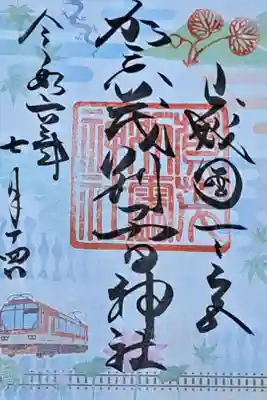 山城国一之宮
賀茂別雷神社
令和六年
七月十四日